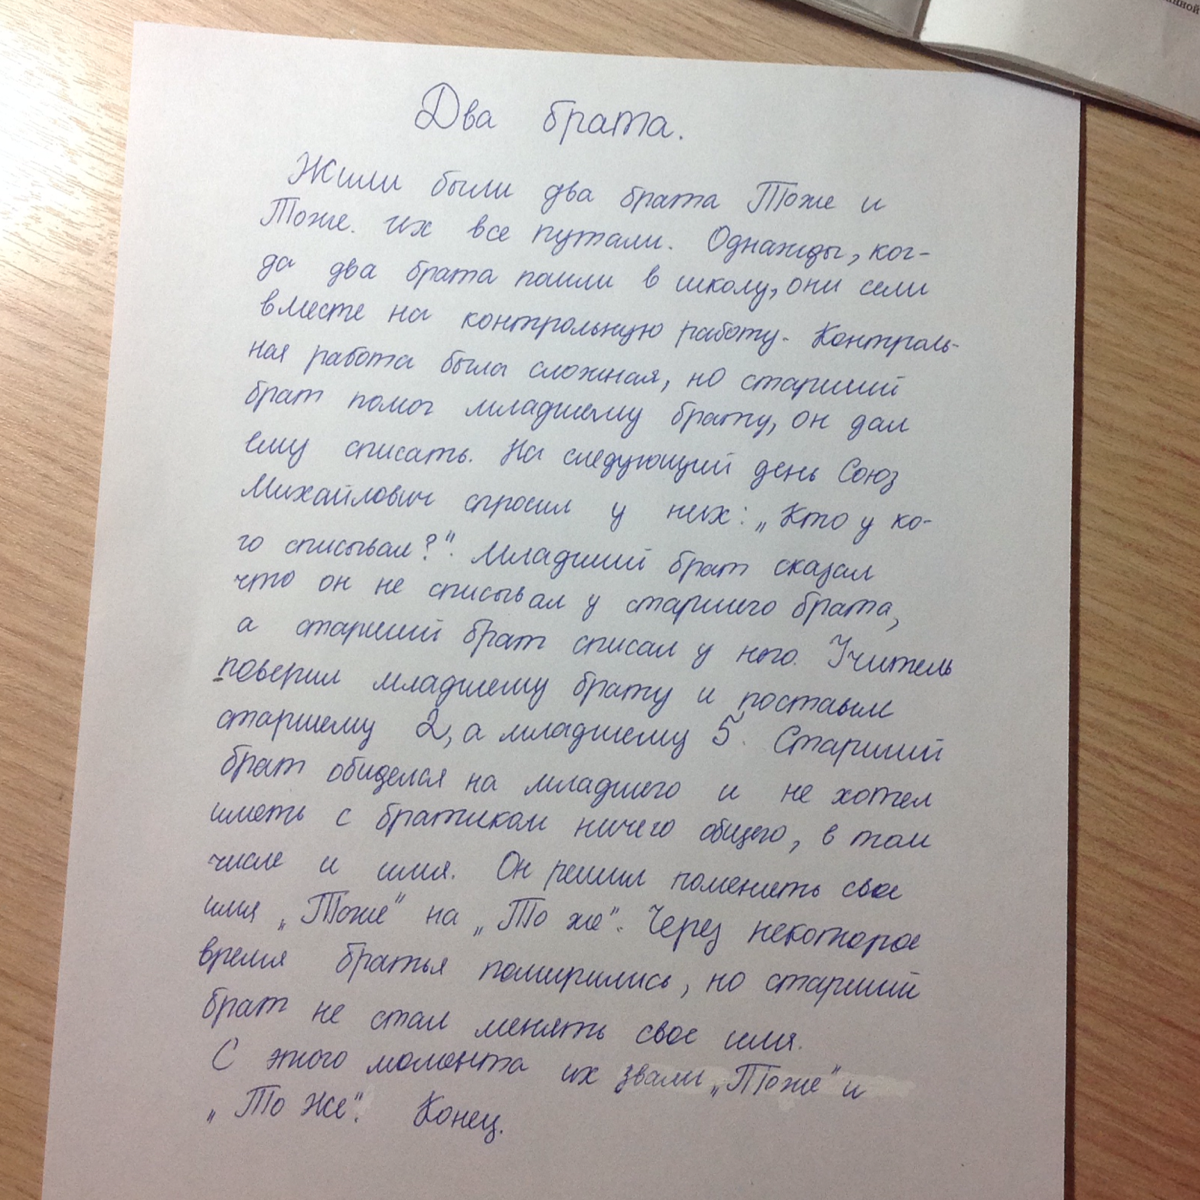 Два брата.
Жили были два брата Тоже и
Тоже. Их все путали. Однажды, ког-
да два брата пошли в школу, они сели
вместе на контрольную работу. Контроль-
ная работа была сложная, но старший
брат помог младшему брату, он дал
ему списать. На следующий день Союз
Михайлович спросил у них: „Кто у ко-
го списывал?". Младший брат сказал
что он не списывал у старшего брата,
а старший брат списал у него. Учитель
поверил младшему брату и поставил
старшему 2, а младшему 5. Старший
брат обиделся на младшего и не хотел
иметь с братиком ничего общего, в том
числе и имя. Он решил поменять свое
имя „Тоже" на „То же". Через некоторое
время братья помирились, но старший
брат не стал менять свое имя.
С этого момента их звали „Тоже" и
„То Же". Конец.